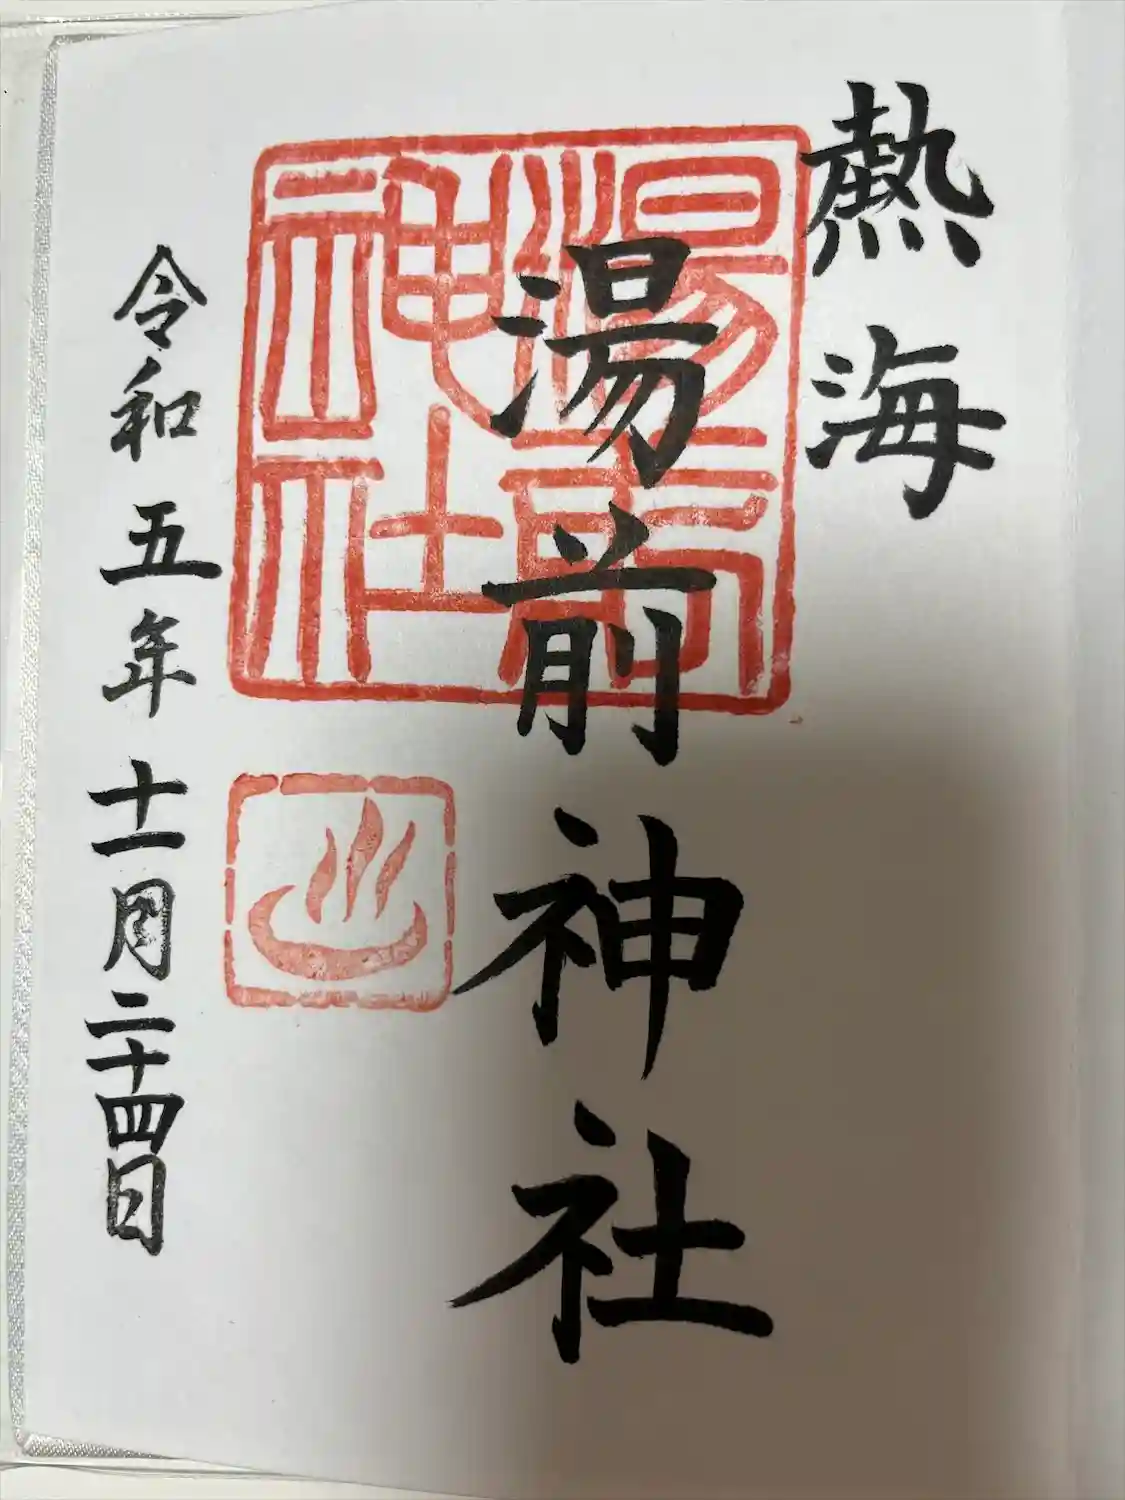 熱海
湯前神社
湯前
神社
令和五年十一月二十四日